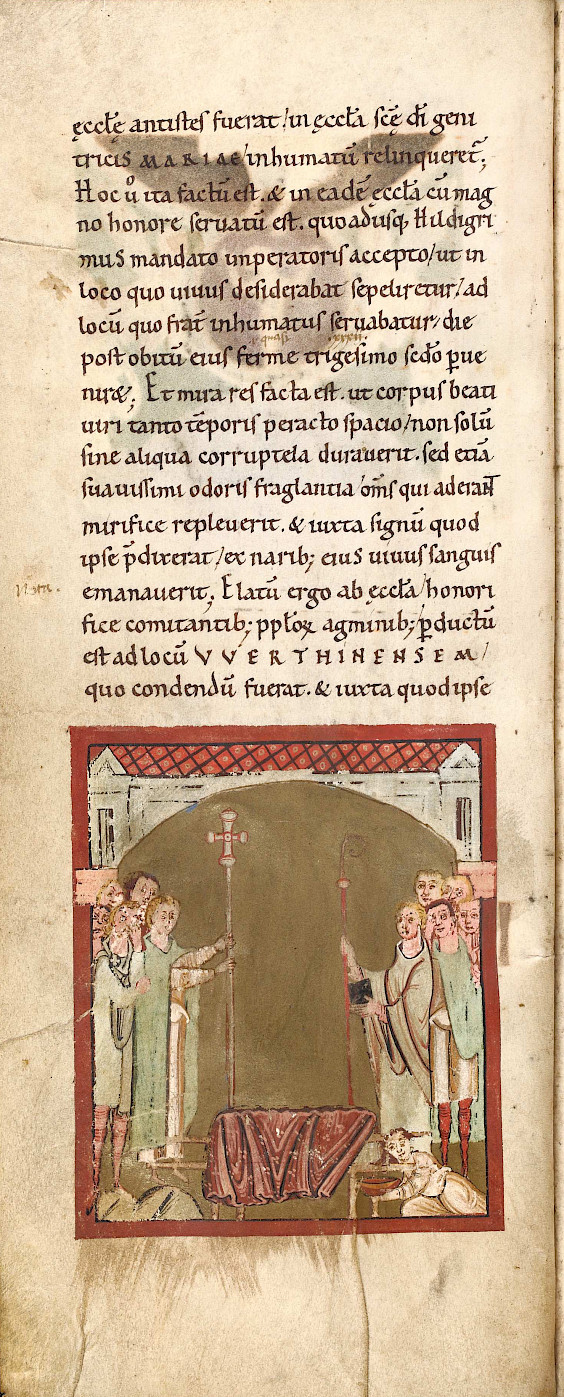 ęccłę antistes fuerat / in ęccła scę di geni
tricis MARIAE / inhumatū relinqueret;
Hoc u̇ ita factū est. & in eadē ęccła cū mag
no honore seruatū est. quoadusq; Hildigri
mus mandato imperatoris accepto / ut in
loco quo uiuus desiderabat sepeliretur / ad
locū quo frat̄ inhumatus seruabatur / die
quasi .xxxii.
post obitū eius ferme trigesimo scdo p̄ue
niret; Et mira res facta est. ut corpus beati
uiri tanto tēporis peracto spacio / non solū
sine aliqua corruptela durauerit. sed etiā
suauissimi odoris fraglantia / om̄s qui aderant
mirifice repleuerit. & iuxta signū quod
ipse p̄dixerat / ex narib; eius uiuus sanguis
Nota.
emanauerit; Elatū ergo ab ęccła / honori
fice comitantib; ppłoꝝ agminib; / pductū
est ad locū VVERTHINENSEM /
quo condendū fuerat. & iuxta quod ipse